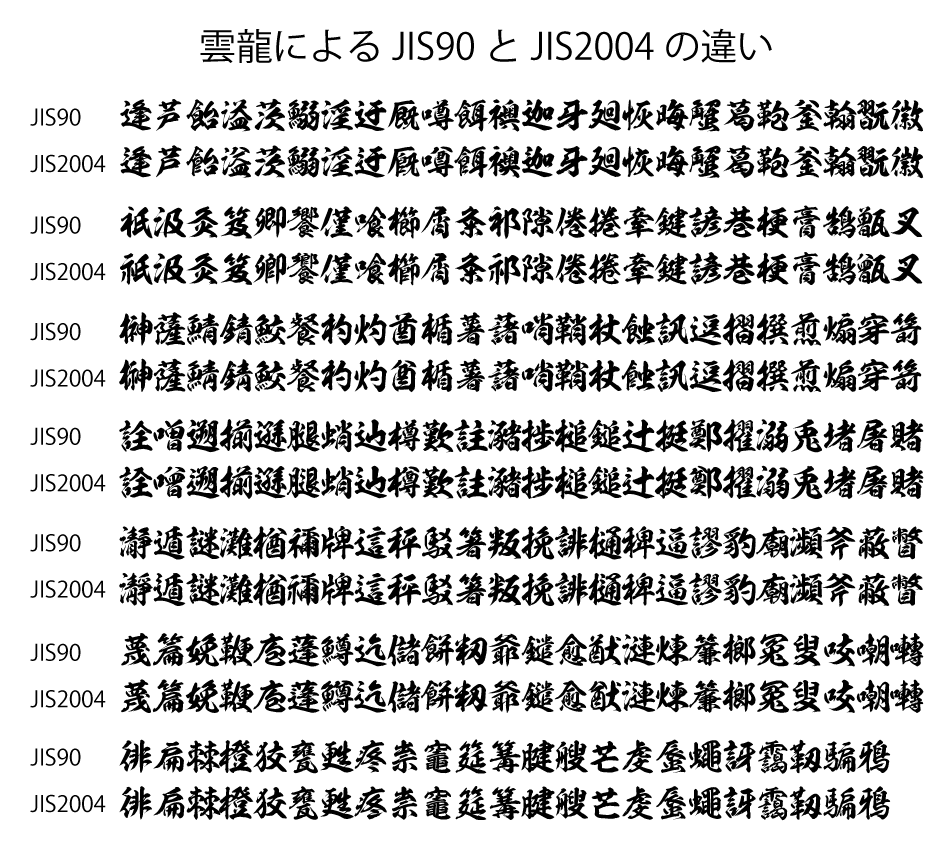 雲龍によるJIS90とJIS2004の違い
JIS90 逢芦飴溢茨鰯淫迂厩噂餌襖迦牙廻恢晦蟹葛鞄釜翰翫徽
JIS2004 逢芦飴溢茨鰯淫迂厩噂餌襖迦牙廻恢晦蟹葛鞄釜翰翫徽
JIS90 祇汲灸笈卿饗僅喰櫛屑粂祁隙倦捲牽鍵諺巷梗膏鵠甑叉
JIS2004 祇汲灸笈卿饗僅喰櫛屑粂祁隙倦捲牽鍵諺巷梗膏鵠甑叉
JIS90 榊薩鯖錆鮫餐杓灼酋楯薯藷哨鞘杖蝕訊逗摺撰煎煽穿箭
JIS2004 榊薩鯖錆鮫餐杓灼酋楯薯藷哨鞘杖蝕訊逗摺撰煎煽穿箭
JIS90 詮噌遡揃遜腿蛸辿樽歎註瀦捗槌鎚辻挺鄭擢溺兎堵屠賭
JIS2004 詮噌遡揃遜腿蛸辿樽歎註瀦捗槌鎚辻挺鄭擢溺兎堵屠賭
JIS90 瀞遁謎灘楢禰牌這秤駁箸叛挽誹樋稗逼謬豹廟瀕斧蔽瞥
JIS2004 瀞遁謎灘楢禰牌這秤駁箸叛挽誹樋稗逼謬豹廟瀕斧蔽瞥
JIS90 蔑篇娩鞭庖蓬鱒迄儲餅籾爺鑓愈猷漣煉簾榔冤叟咬嘲囀
JIS2004 蔑篇娩鞭庖蓬鱒迄儲餅籾爺鑓愈猷漣煉簾榔冤叟咬嘲囀
JIS90 徘扁棘橙狡甕甦疼祟竈筵篝腱艘芒虔蜃蠅訝靄靱騙鴉
JIS2004 徘扁棘橙狡甕甦疼祟竈筵篝腱艘芒虔蜃蠅訝靄靱騙鴉